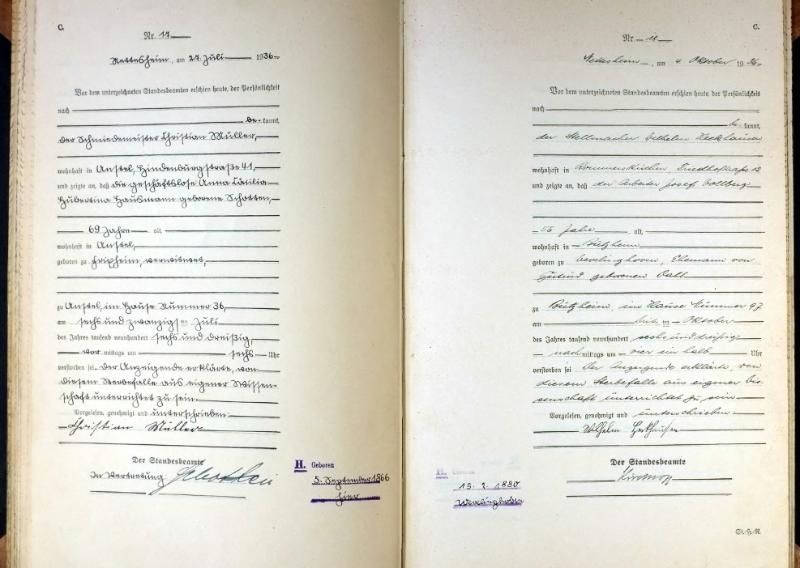 C.
Nr. 17
Nettesheim, am 27. Juli 1936
Vor dem unterzeichneten Standesbeamten erschien heute, der Persönlichkeit
nach
be-kannt,
der Schmiedemeister Christian Müller,
wohnhaft in Anstel, Hindenburgstraße 41,
und zeigte an, daß die geschäftslose Anna Cäcilia
Hubertina Hausmann geborene Schotten,
69 Jahre alt
wohnhaft in Anstel,
geboren zu Frixheim, verwitwet,
zu Anstel, im Hause Nummer 36,
am sechs und zwanzigsten Juli
des Jahres tausend neunhundert sechs und dreißig,
vor mittags um sechs Uhr
verstorben sei. Der Anzeigende erklärte, von
diesem Sterbefalle aus eigener Wissen-
schaft unterrichtet zu sein.
Vorgelesen, genehmigt und unterschrieben
Christian Müller
Der Standesbeamte
In Vertretung
H. Geboren
5. September 1866
hier
C.
Nr. 18
am 4. Oktober 1936
Vor dem unterzeichneten Standesbeamten erschien heute, der Persönlichkeit
nach
be-kannt,
der Stellmacher Wilhelm
wohnhaft in Rommerskirchen
und zeigte an, daß der Arbeiter Josef
56 Jahre alt,
wohnhaft in Bützheim
geboren zu Ehemann von
geborenen
zu Bützheim, im Hause Nummer 97
am Oktober
des Jahres tausend neunhundert sechs und dreißig
nach mittags um vier ein halb Uhr
verstorben sei. Der Anzeigende erklärte von
diesem Sterbefalle aus eigener Wis-
senschaft unterrichtet zu sein
Vorgelesen, genehmigt und unterschrieben
Wilhelm
Der Standesbeamte
H.
15. 2. 1880